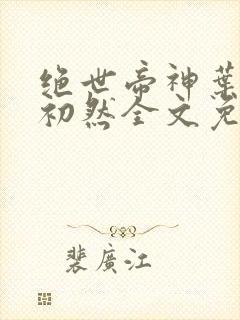 绝世帝神葉
初然全文免
裴廣江